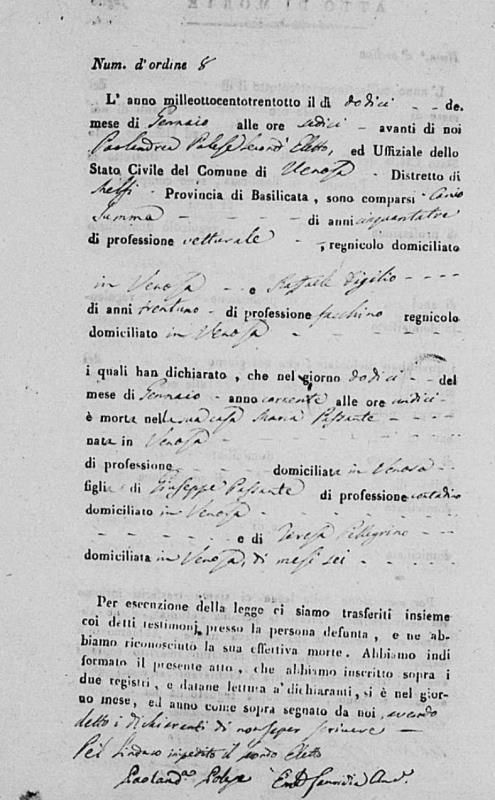 Num. d'ordine 8
L' anno milleottocentotrentotto il dì dodici - - del
mese di Gennaio alle ore sedici - avanti di noi
Paolandrea Polese secondo Eletto, ed Uffiziale dello
Stato Civile del Comune di Venosa - Distretto di
Melfi - Provincia di Basilicata, sono comparsi
Summa - - - - di anni cinquantatre
di professione vetturale - , regnicolo domiciliato
in Venosa - - e Raffaele Vigilio - - - -
di anni trentuno - di professione facchino regnicolo
domiciliato in Venosa - - - -
i quali han dichiarato, che nel giorno dodici - - del
mese di Gennaio - anno corrente alle ore undici -
è morta nella sua casa Maria Passante - - -
nata in Venosa - - - -
di professione domiciliata in Venosa - -
figlia di Giuseppe Passante di professione contadino
domiciliato in Venosa - - - -
- - - - - e di Teresa Pellegrino - -
domiciliata in Venosa, di mesi sei - - - -
Per esecuzione della legge ci siamo trasferiti insieme
coi detti testimonj presso la persona defunta, e ne ab-
biamo riconosciuto la sua effettiva morte. Abbiamo indi
formato il presente atto, che abbiamo inscritto sopra i
due registri, e datane lettura a' dichiaranti, si è nel gior-
no mese, ed anno come sopra segnato da noi, avendo
detto i dichiaranti di non saper scrivere -
Pel Sindaco impedito il secondo Eletto
Paoland.ª Polese